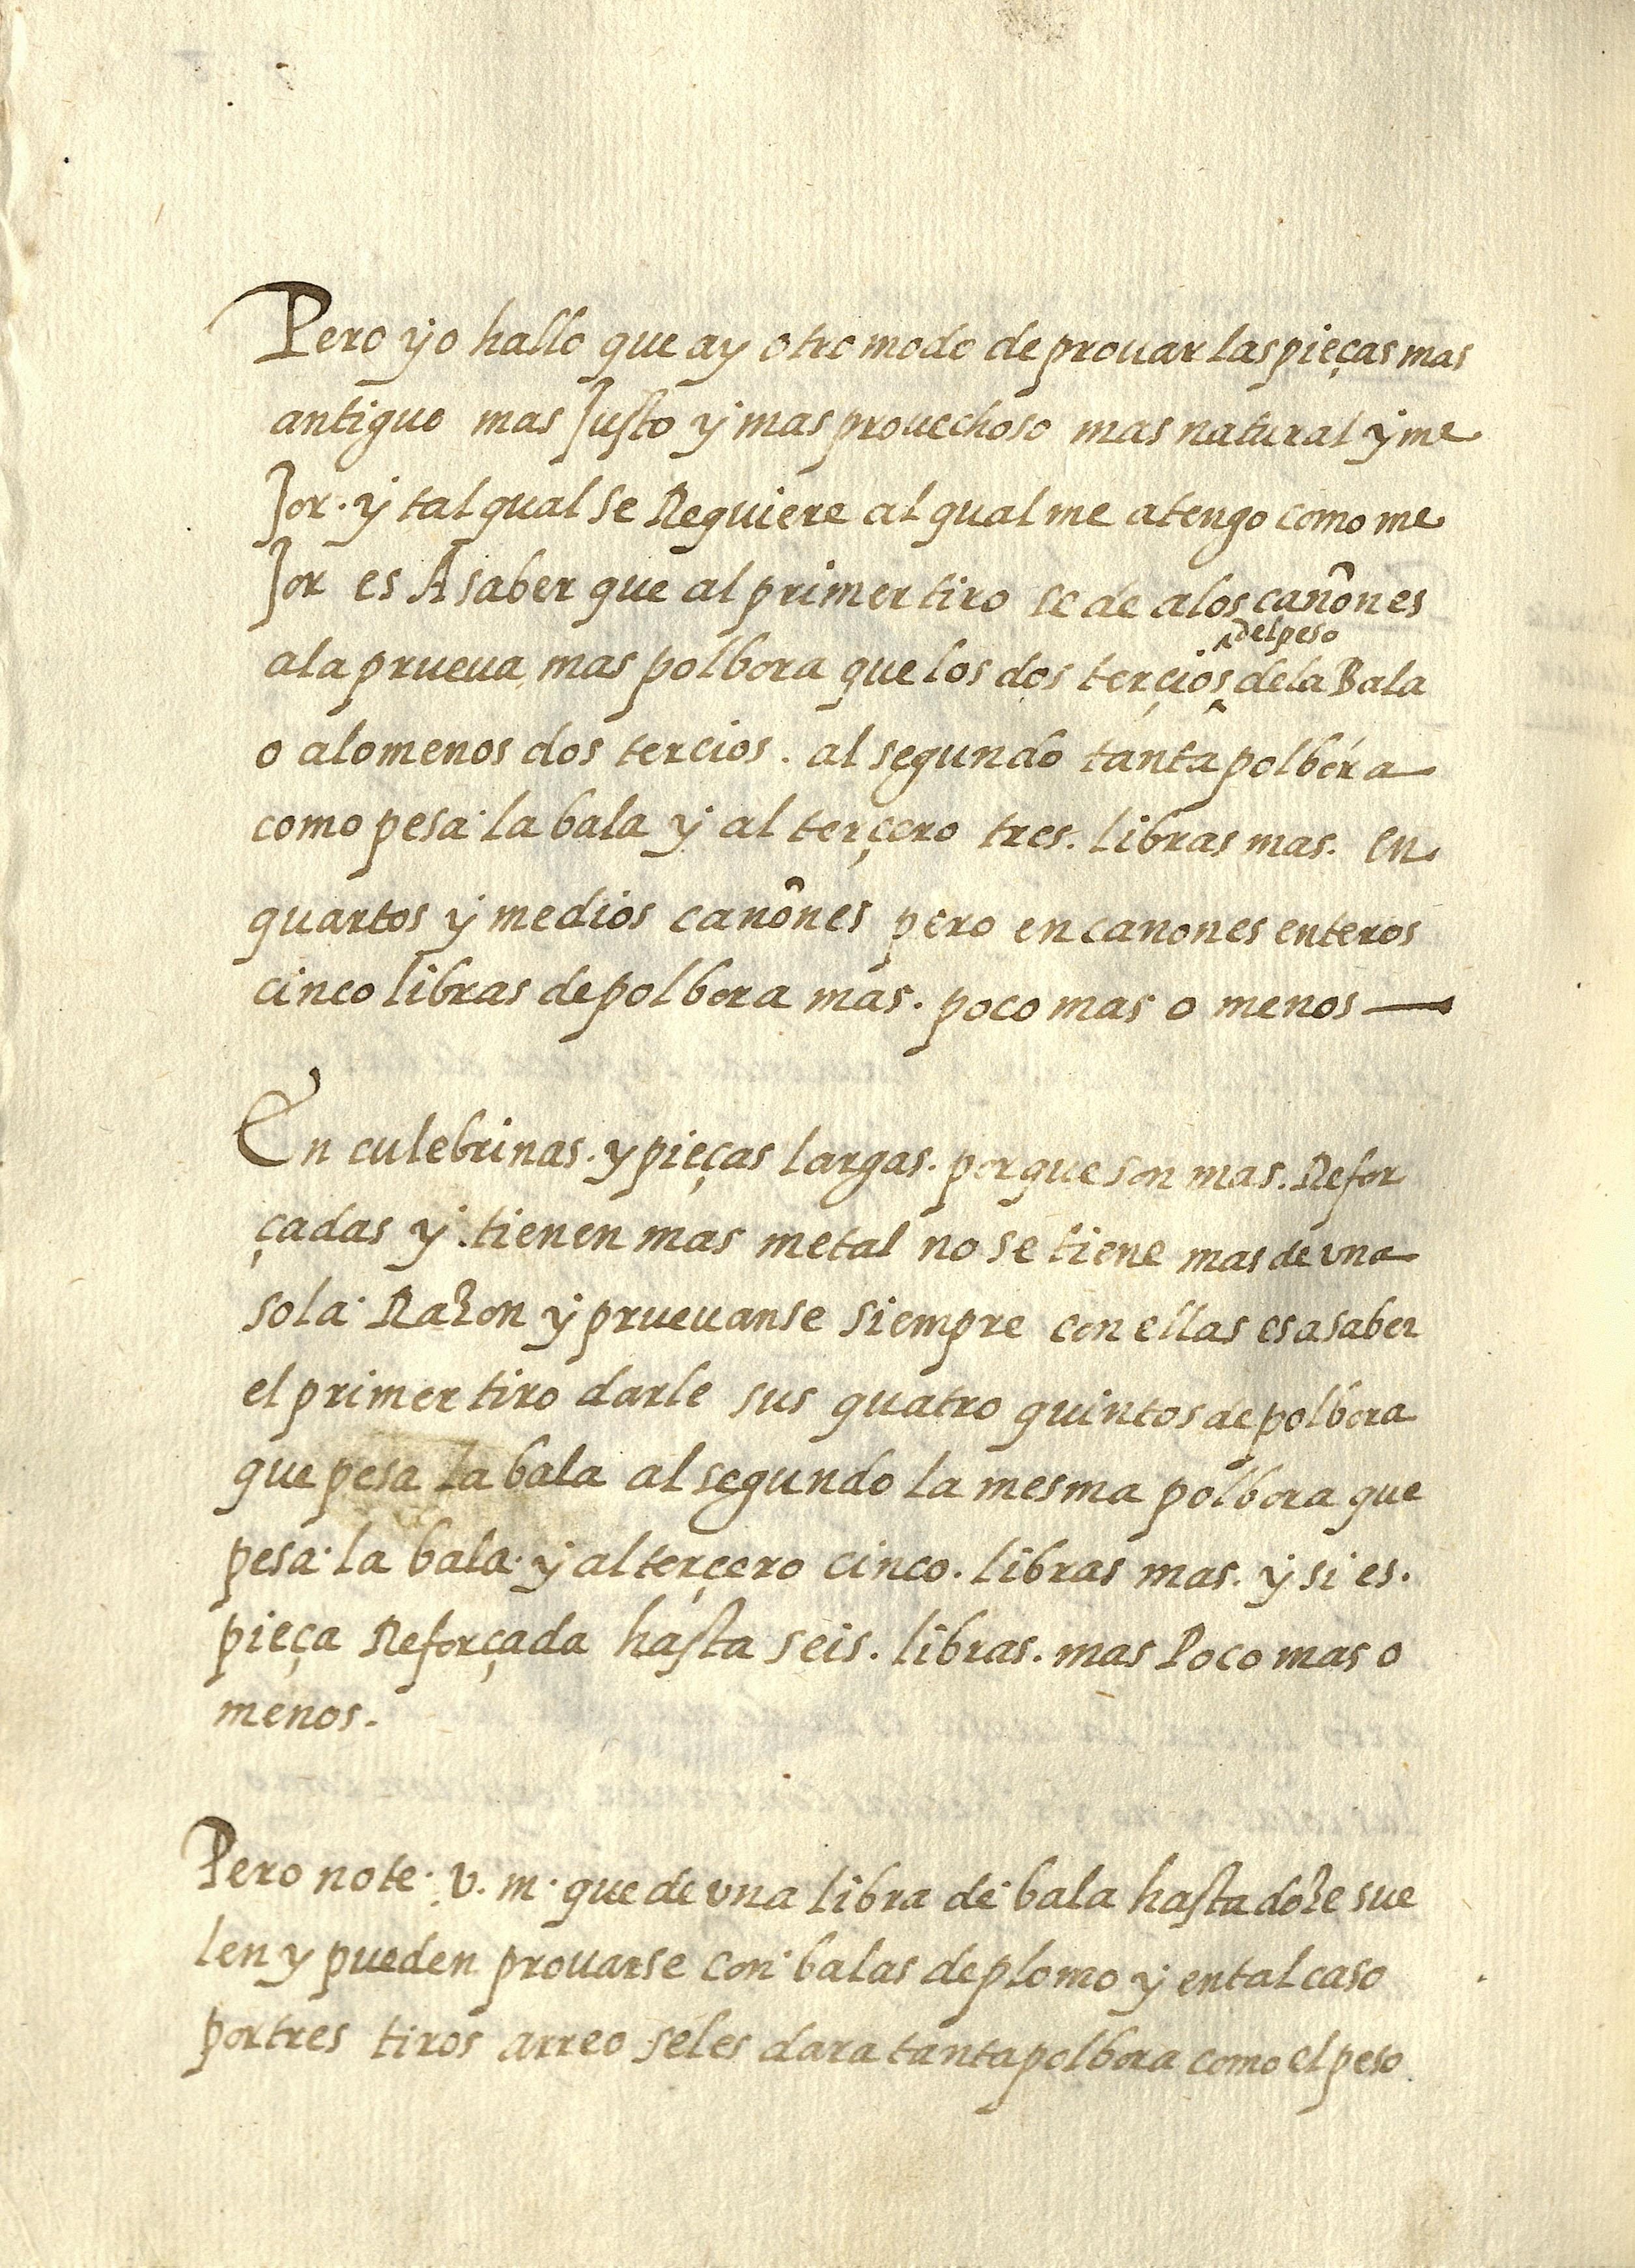 Pero yo hallo que ay otro modo de prouar las pieças mas
antiguo mas Justo y mas prouechoso mas natural y me
Jor. y tal qual se Requiere al qual me atengo como me
Jor es A saber que al primer tiro se de a los cañones
a la prueua mas polbora que los dos terçios ^del peso de la Bala
o alomenos dos tercios. al segundo tanta polbora
como pesa la bala y al terçero tres. libras mas. en
quartos y medios cañones pero en canones enteros
cinco libras de polbora mas. poco mas o menos —
En culebrinas. y pieças largas. porque son mas. Refor
çadas y tienen mas metal no se tiene mas de vna
sola Razon y prueuanse siempre con ellas es a saber
el primer tiro darle sus quatro quintos de polbora
que pesa la bala al segundo la mesma polbora que
pesa la bala y al terçero cinco. libras mas. y si es.
pieça Reforçada hasta seis. libras. mas Poco mas o
menos.
Pero note. v. m. que de vna libra de bala hasta doze sue
len y pueden prouarse con balas de plomo y en tal caso
por tres tiros arreo se les dara tanta polbora como el peso